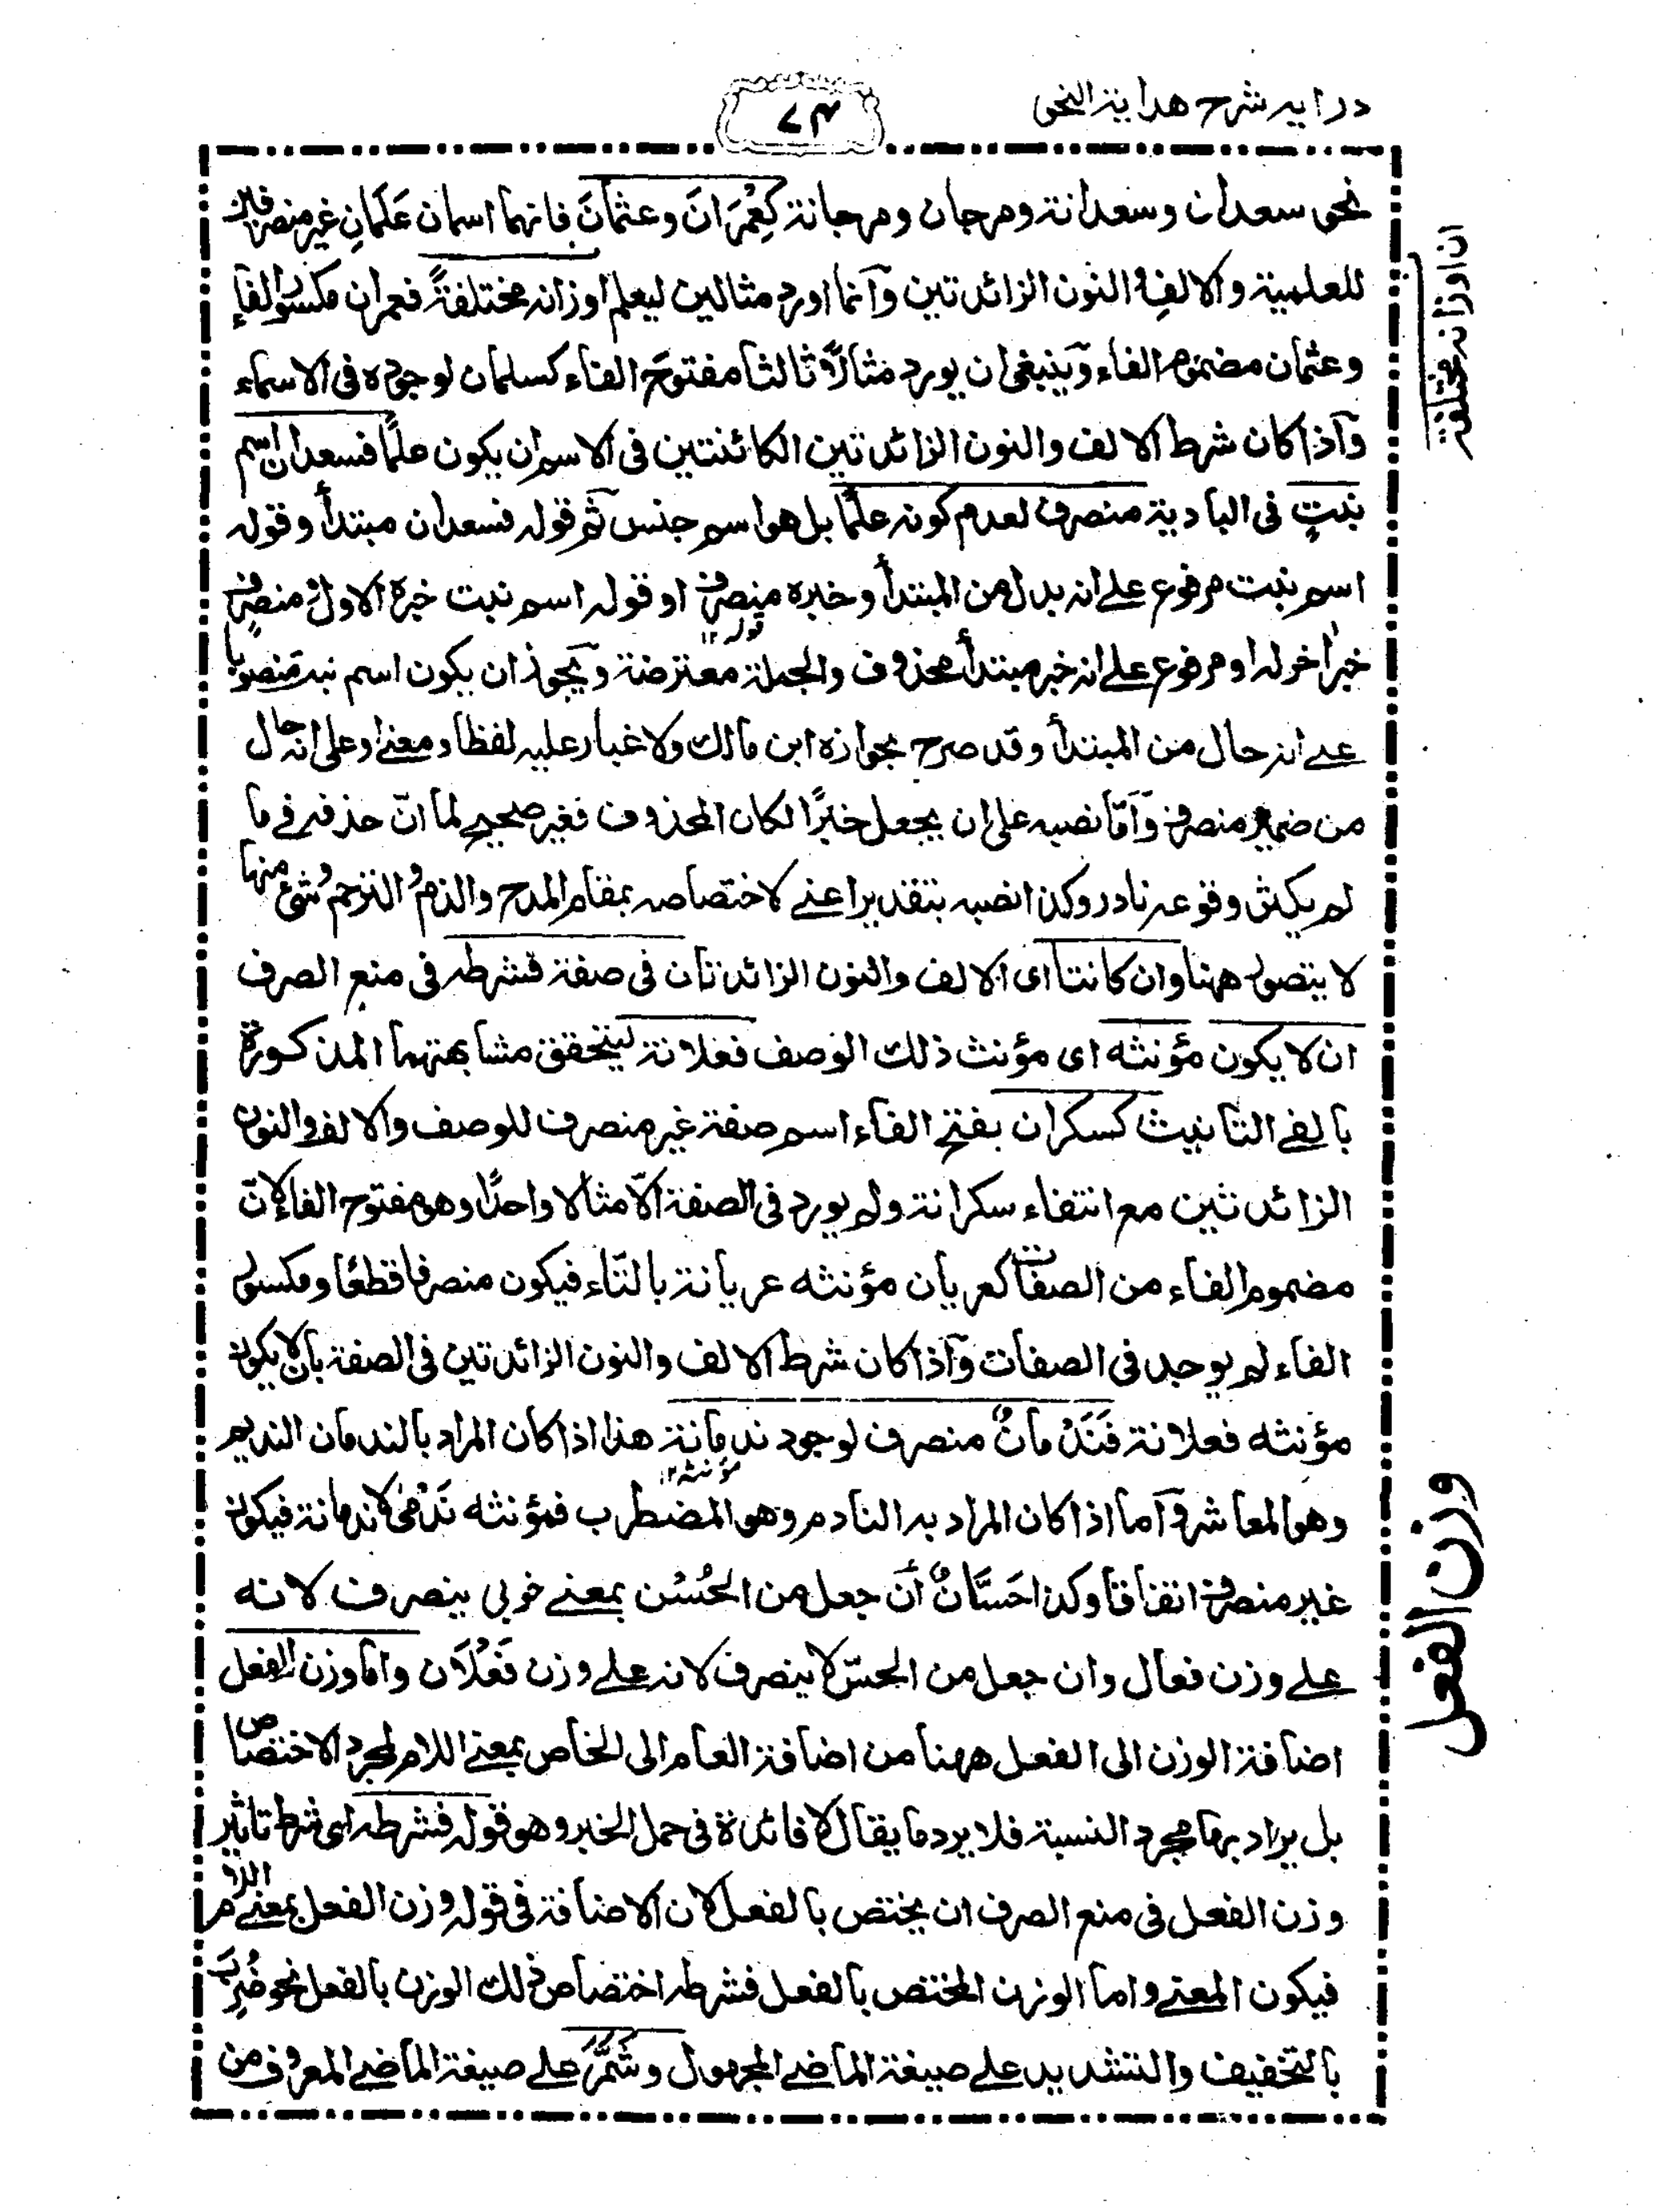 درایہ شرح هدایة النحو
۷۴
نحو سعدان وسعدانة ومرجان ومرجانة كَعِمْرَانَ وعثمانَ فانهما اسمان عَلَمانِ غير منصرفين
للعلمية والالفِ والنون الزائدتين وآنما اورد مثالين ليعلم اوزانه مختلفةً فعمران مكسور الفاء
وعثمان مضموم الفاء وينبغى ان يورد مثالاً ثالثا مفتوح الفاء كسلمان لوجوده فى الاسماء
وآذا كان شرط الالف والنون الزائدتين الكائنتين فى الاسم ان يكون علمًا فسعدان اسم
نبتٍ فى البادية منصرف لعدم كونه علمًا بل هو اسم جنس ثم قوله فسعدان مبتدأ وقوله
اسم نبت مرفوع على انه بدل من المبتدأ وخبره منصرف او قوله اسم نبت خبره الاول و منصرف
قوله ۱۲
خبرٌ اٰخر له او مرفوع على انه خبر مبتدأ محذوف والجملة معترضة ويجوز ان يكون اسم نبت منصوبا
على انه حال من المبتدأ وقد صرح بجوازه ابن مالك ولا غبار عليه لفظا ومعنے او على انه حال
من ضمير منصرف وآمّا نصبه على ان يجعل خبرًا لكان المحذوف فغير صحيح لما انّ حذفه فے ما
لم يكثر وقوعه نادر وكذا نصبه بتقدير اعنے لاختصاصه بمقام المدح والذم و الترحم و شئ منها
لا يتصور ههنا وان كانتا اى الالف والنون الزائدتان فى صفة فشرطه فى منع الصرف
ان لا يكون مؤنثه اى مؤنث ذلك الوصف فعلانة ليتحقق مشابهتهما المذكورة
بالفے التانيث كسكران بفتح الفاء اسم صفة غير منصرف للوصف والالف والنون
الزائدتين مع انتفاء سكرانة ولم يورد فى الصفة الّا مثالا واحدًا وهو مفتوح الفاء لانّ
مضموم الفاء من الصفات كعريان مؤنثه عريانة بالتّاء فيكون منصرفا قطعًا ومكسور
الفاء لم يوجد فى الصفات وآذا كان شرط الالف والنون الزائدتين فى الصفة بان لا يكون
مؤنثه فعلانة فَنَدْمانٌ منصرف لوجود ندمانة هذا اذا كان المراد بالندمان النديم
مؤنثه ۱۲
وهو المعاشر وآما اذا كان المراد به النادم وهو المضطرب فمؤنثه نَدْمٰى لا ندمانة فيكون
غير منصرف اتفاقا وكذا حَسَّانٌ ان جعل من الحُسْن بمعنے خوبى ينصرف لانه
على وزن فعال وان جعل من الحسّ لا ينصرف لانه على وزن فَعْلَان واما وزن الفعل
اضافة الوزن الى الفعل ههنا من اضافة العام الى الخاص بمعنے اللام لمجرد الاختصاص
بل يراد بها مجرد النسبة فلا يرد ما يقال لا فائدة فى حمل الخبر وهو قوله فشرطه اى شرط تاثير
وزن الفعل فى منع الصرف ان يختص بالفعل لان الاضافة فى قوله وزن الفعل بمعنے اللام
فيكون المعنے واما الوزن المختص بالفعل فشرطه اختصاص ذلك الوزن بالفعل نحو ضُرِبَ
بالتخفيف والتشديد على صيغة الماضے المجهول وشَمَّرَ على صيغة الماضے المعروف من
ان اوزانه مختلفة
وزن الفعل